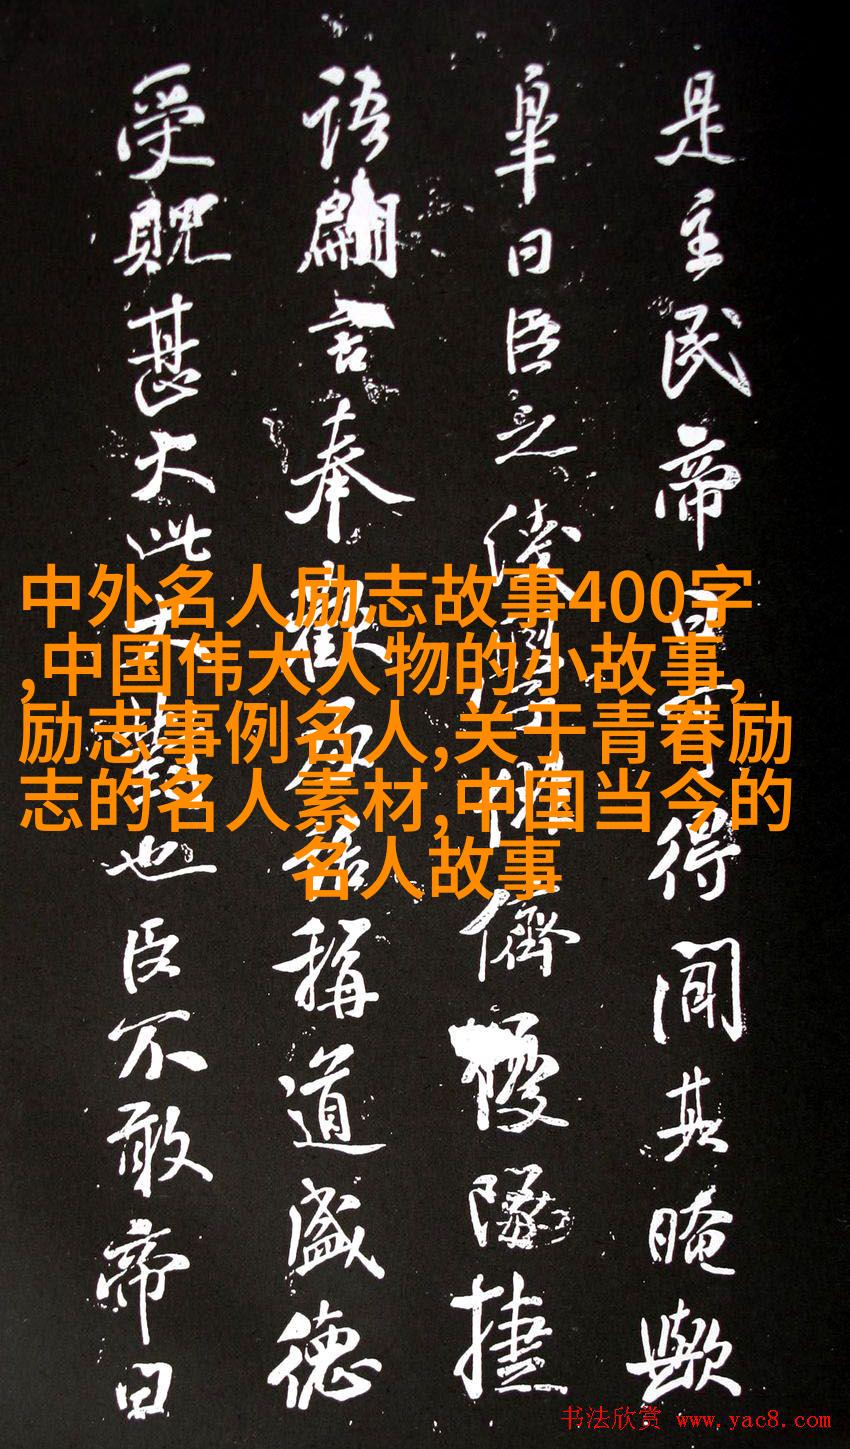 是主民帝得聞其晻歟
皐曰臣之儕優隊捷
语翩言奉稱道盛德
受貺甚大此也臣不敢帝曰
中外名人励志故事400字
,中国伟大人物的小故事,
励志事例名人,关于青春励
志的名人素材,中国当今的
名人故事
书法欣赏 www.yac8.com